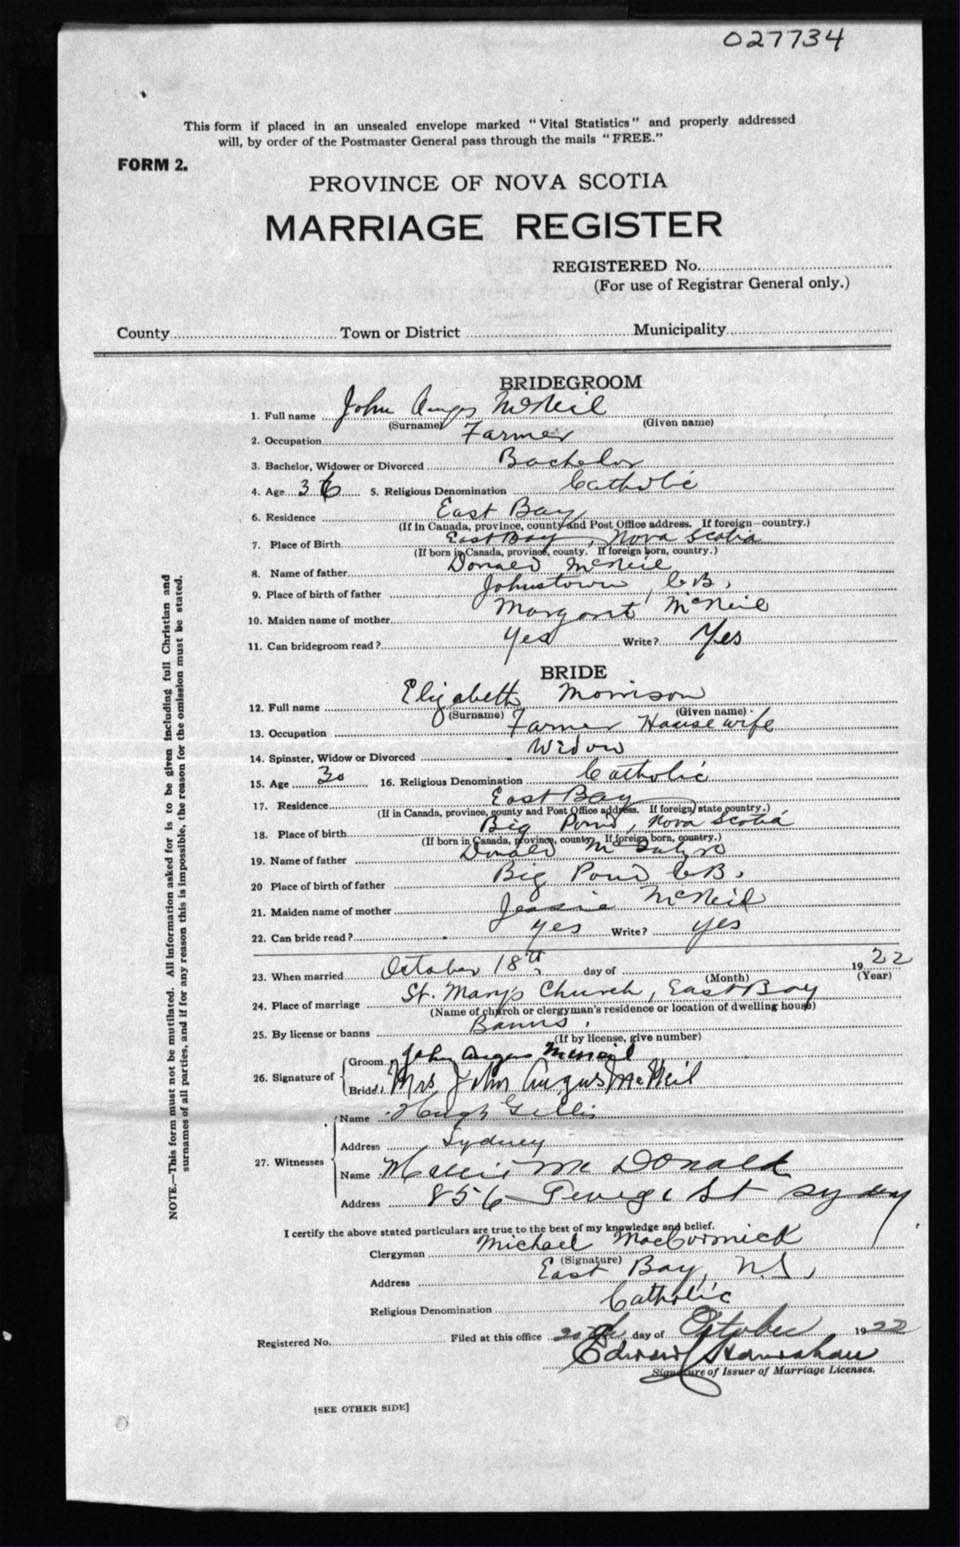 027734
This form if placed in an unsealed envelope marked "Vital Statistics" and properly addressed
will, by order of the Postmaster General pass through the mails "FREE."
FORM 2.
PROVINCE OF NOVA SCOTIA
MARRIAGE REGISTER
REGISTERED No.
(For use of Registrar General only.)
County Town or District Municipality
BRIDEGROOM
1. Full name John Angus McNeil
(Surname) (Given name)
2. Occupation Farmer
3. Bachelor, Widower or Divorced Bachelor
4. Age 36 5. Religious Denomination Catholic
6. Residence East Bay
(If in Canada, province, county and Post Office address. If foreign—country.)
7. Place of Birth East Bay, Nova Scotia
(If born in Canada, province, county. If foreign born, country.)
8. Name of father Donald McNeil
9. Place of birth of father Johnstown, C.B.
10. Maiden name of mother Margaret McNeil
11. Can bridegroom read? Yes Write? Yes
BRIDE
12. Full name Elizabeth Morrison
(Surname) (Given name)
13. Occupation Farmer Housewife
14. Spinster, Widow or Divorced Widow
15. Age 30 16. Religious Denomination Catholic
17. Residence East Bay
(If in Canada, province, county and Post Office address. If foreign state country.)
18. Place of birth Big Pond, Nova Scotia
(If born in Canada, province, county. If foreign born, country.)
19. Name of father Donald
20 Place of birth of father Big Pond C.B.
21. Maiden name of mother Jessie McNeil
22. Can bride read? yes Write? yes
23. When married October 18th day of 1922
(Month) (Year)
24. Place of marriage St. Mary's Church, East Bay
(Name of church or clergyman's residence or location of dwelling house)
25. By license or banns Banns.
(If by license, give number)
26. Signature of
Groom John Angus McNeil
Bride Mrs John Angus McNeil
27. Witnesses
Name Hugh Gillis
Address Sydney
Name McDonald
Address 856 George St Sydney
I certify the above stated particulars are true to the best of my knowledge and belief.
Clergyman Michael MacCormick
(Signature)
Address East Bay, N.S.
Religious Denomination Catholic
Registered No. Filed at this office 20th day of October 1922
Edward
Signature of Issuer of Marriage Licenses.
[SEE OTHER SIDE]
NOTE.—This form must not be mutilated. All information asked for is to be given including full Christian and
surnames of all parties, and if for any reason this is impossible, the reason for the omission must be stated.